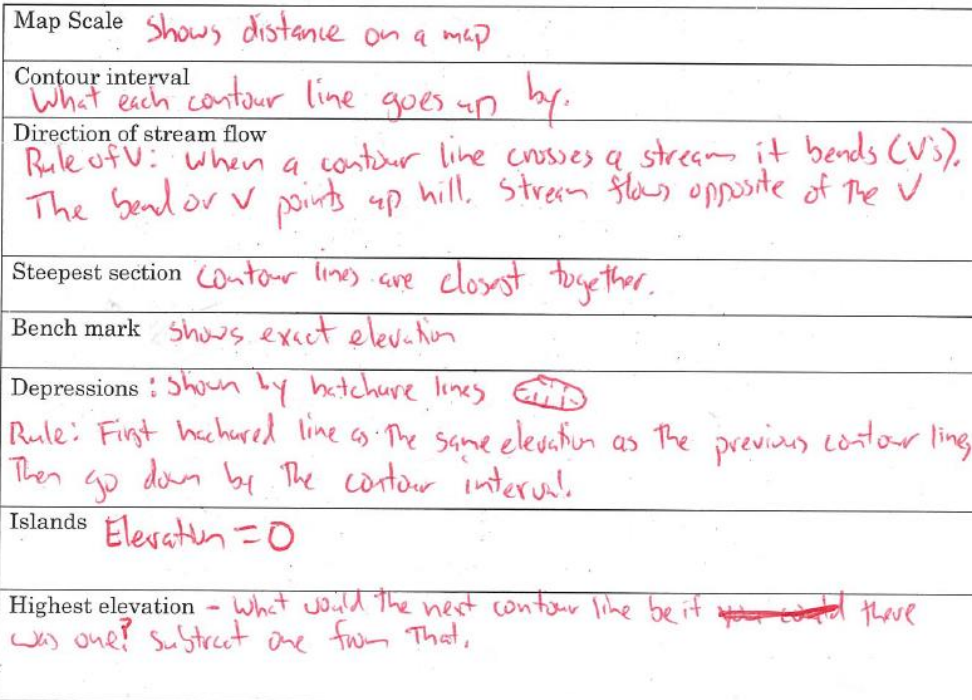 Map Scale Shows distance on a map
Contour interval
What each contour line goes up by.
Direction of stream flow
Rule of V: When a contour line crosses a stream it bends (V's).
The bend or V points up hill. Stream flows opposite of The V
Steepest section Contour lines are closest together.
Bench mark shows exact elevation
Depressions : Shown by hatchure lines
Rule: First hachured line is The same elevation as The previous contour line,
Then go down by The contour interval.
Islands Elevation = 0
Highest elevation - What would The next contour line be if there
was one? Subtract one from That.